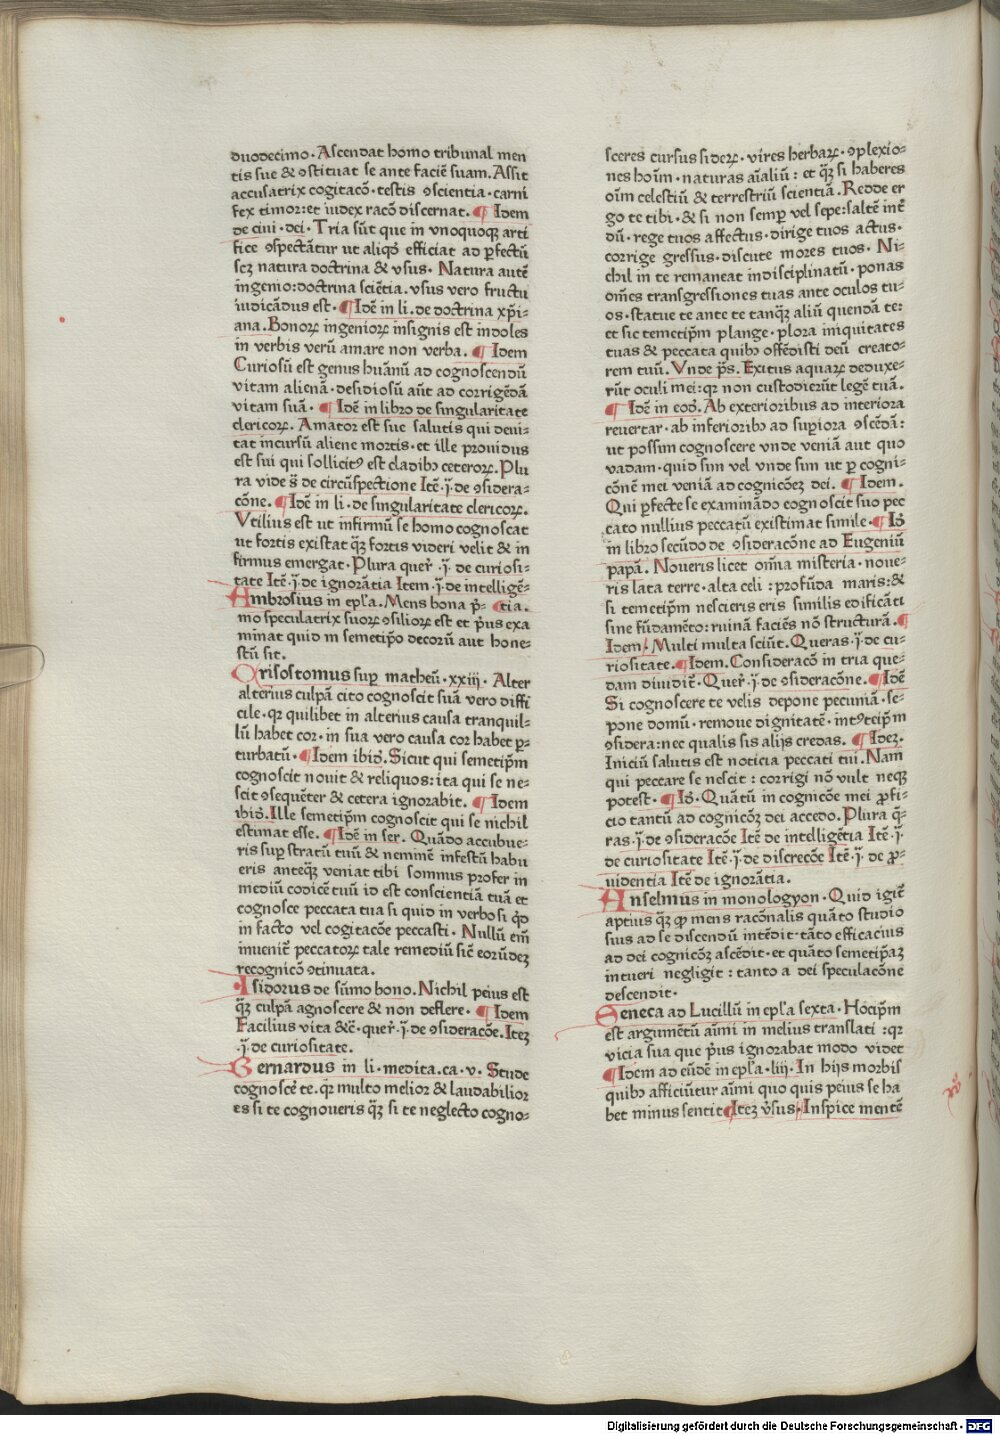 duodecimo. Ascendat homo tribunal men
tis sue & ꝯstituat se ante faciē suam. Assit
accusatrix cogitacō. testis ꝯscientia. carni
fex timor: et iudex racō discernat. ¶ Idem
de ciui. dei. Tria sūt que in vnoquoqꝫ arti
fice ꝯspectātur ut aliqd̄ efficiat ad ꝑfectū
scꝫ natura doctrina & vsus. Natura autē
ingenio: doctrina sciētia. vsus vero fructu
iudicādus est. ¶ Idē in li. de doctrina xp̄i-
ana. Bonoꝝ ingenioꝝ insignis est indoles
in verbis verū amare non verba. ¶ Idem
Curiosū est genus huānū ad cognoscendū
vitam alienā. desidiosū aūt ad corrigēdā
vitam suā. ¶ Idē in libro de singularitate
clericoꝝ. Amator est sue salutis qui deui-
tat incursū aliene mortis. et ille prouidus
est sui qui sollicitꝰ est cladibꝫ ceteroꝝ. Plu
ra vide s̄ de circūspectione Itē. j̄. de ꝯsidera-
cōne. ¶ Idē in li. de singularitate clericoꝝ.
Vtilius est ut infirmū se homo cognoscat
ut fortis existat qꝫ fortis videri velit & in
firmus emergat. Plura quer̄ .j̄. de curiosi-
tate Itē .j̄. de ignorātia Item .j̄. de intelligē-
Ambrosius in ep̄la. Mens bona p̄- ¶tia.
mo speculatrix suoꝝ ꝯsilioꝝ est et pꝰus exa
minat quid in semetip̄o decorū aut hone-
stū sit.
Crisostomus suꝑ matheū. xxiij. Alter
alterius culpā cito cognoscit suā vero diffi
cile. qꝛ quilibet in alterius causa tranquil-
lū habet cor. in sua vero causa cor habet ꝑ-
turbatū. ¶ Idem ibid̄. Sicut qui semetip̄m
cognoscit nouit & reliquos: ita qui se ne-
scit ꝯsequēter & cetera ignorabit. ¶ Idem
ibid̄. Ille semetip̄m cognoscit qui se nichil
estimat esse. ¶ Idē in ser. Quādo accubue-
ris suꝑ stratū tuū & neminē infestū habu
eris anteqꝫ veniat tibi somnus profer in
mediū codicē tuū id est conscientiā tuā et
cognosce peccata tua si quid in verbo si qd̄
in facto vel cogitacōe peccasti. Nullū em̄
inuenit̄ peccatoꝝ tale remediū sic̄ eorūdeꝫ
recognicō ꝯtinuata.
Isidorus de sūmo bono. Nichil peius est
qꝫ culpā agnoscere & non deflere. ¶ Idem
Facilius vita &c̄. quer̄ .j̄. de ꝯsideracōe. Iteꝫ
.j̄. de curiositate.
Bernardus in li. medita. ca. v. Stude
cognosce te. qꝛ multo melior & laudabilior
es si te cognoueris qꝫ si te neglecto cogno-
sceres cursus sideꝝ. vires herbaꝝ. ꝯplexio-
nes hoīm. naturas aīaliū: et qꝫ si haberes
oīm celestiū & terrestriū scientiā. Redde er
go te tibi. & si non semꝑ vel sepe: saltē int̄
dū. rege tuos affectus. dirige tuos actus.
corrige gressus. discute mores tuos. Ni-
chil in te remaneat indisciplinatū. ponas
om̄es transgressiones tuas ante oculos tu-
os. statue te ante te tanqꝫ aliū quendā te:
et sic temetip̄m plange. plora iniquitates
tuas & peccata quibꝫ offēdisti deū creato-
rem tuū. Vnde ps̄. Exitus aquaꝝ deduxe-
rūt oculi mei: qꝛ non custodierūt legē tuā.
¶ Idē in eod̄. Ab exterioribus ad interiora
reuertar. ab inferioribꝫ ad suꝑiora ꝯscēdā:
ut possim cognoscere vnde veniā aut quo
vadam. quid sim vel vnde sim ut ꝑ cogni-
cōnē mei veniā ad cognicōeꝫ dei. ¶ Idem.
Qui ꝑfecte se examinādo cognoscit suo pec
cato nullius peccatū existimat simile. ¶ Id̄
in libro secūdo de ꝯsideracōne ad Eugeniū
papā. Noueris licet om̄ia misteria. noue-
ris lata terre. alta celi: profūda maris: &
si temetip̄m nescieris eris similis edificāti
sine fūdamēto: ruinā faciēs nō structurā. ¶
Idem. Multi multa sciūt. Queras .j̄. de cu-
riositate. ¶ Idem. Consideracō in tria que-
dam diuidit̄. Quer̄ .j̄. de ꝯsideracōne. ¶ Idē
Si cognoscere te velis depone pecuniā. se-
pone domū. remoue dignitatē. intꝰ teip̄m
ꝯsidera: nec qualis sis alijs credas. ¶ Ideꝫ.
Iniciū salutis est noticia peccati tui. Nam̄
qui peccare se nescit: corrigi nō vult neqꝫ
potest. ¶ Id̄. Quātū in cognicōe mei ꝓfi-
cio tantū ad cognicōꝫ dei accedo. Plura q̄-
ras .j̄. de ꝯsideracōe Itē de intelligētia Itē .j̄.
de curiositate Itē .j̄. de discrecōe Itē .j̄. de ꝓ-
uidentia Itē de ignorātia.
Anselmus in monologyon. Quid igit̄
aptius qꝫ ꝙ mens racōnalis quāto studio
sius ad se discendū intēdit. tāto efficacius
ad dei cognicōꝫ ascēdit. et quāto semetip̄aꝫ
intueri negligit: tanto a dei speculacōne
descendit.
Seneca ad Lucillū in ep̄la sexta. Hoc ip̄m
est argumētū aīmi in melius translati: qꝛ
vicia sua que pꝰus ignorabat modo videt
¶ Idem ad eūdē in ep̄la. liij. In hijs morbis
quibꝫ afficiūtur aīmi quo quis peius se ha
bet minus sentit ¶ Iteꝫ v̄sus. Inspice mentē
Digitalisierung gefördert durch die Deutsche Forschungsgemeinschaft · DFG